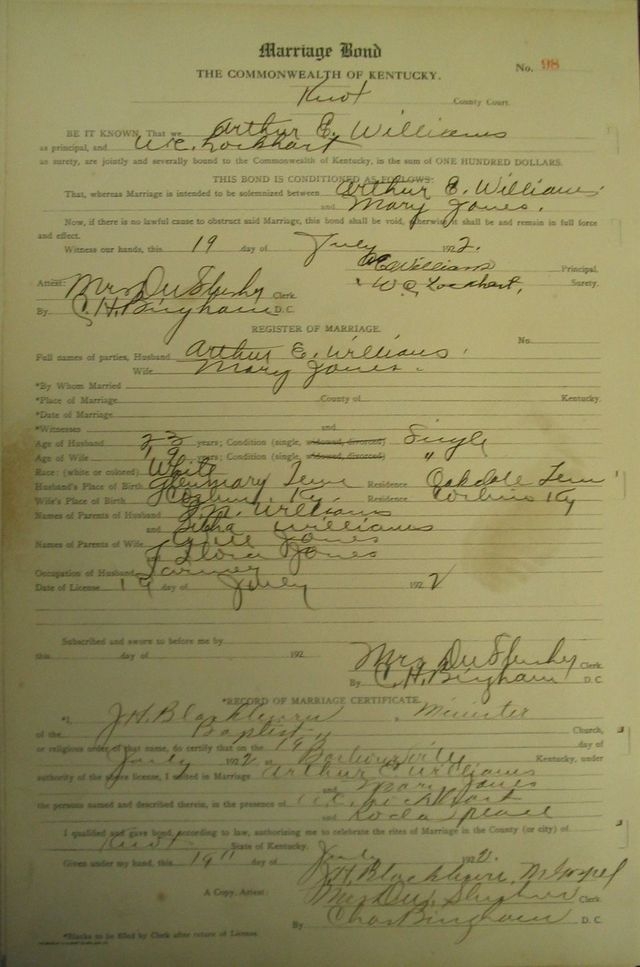 Marriage Bond
No. 98
THE COMMONWEALTH OF KENTUCKY.
Knox County Court.
BE IT KNOWN, That we, Arthur E. Williams
as principal, and W.C. Lockhart
as surety, are jointly and severally bound to the Commonwealth of Kentucky, in the sum of ONE HUNDRED DOLLARS.
THIS BOND IS CONDITIONED AS FOLLOWS:
That, whereas Marriage is intended to be solemnized between Arthur E. Williams
and Mary Jones.
Now, if there is no lawful cause to obstruct said Marriage, this bond shall be void, otherwise it shall be and remain in full force
and effect.
Witness our hands, this 19 day of July 1922.
AE Williams Principal.
Attest: W C Lockhart, Surety.
Mrs. D Clerk.
By C. H. Bingham D. C.
REGISTER OF MARRIAGE.
No.
Full names of parties, Husband Arthur E. Williams.
Wife Mary Jones.
*By Whom Married
*Place of Marriage County of Kentucky.
*Date of Marriage
*Witnesses and
Age of Husband years; Condition (single, widowed, divorced) Single
Age of Wife 19 years; Condition (single, widowed, divorced) "
Race: (white or colored) White
Husband's Place of Birth Glenmary Tenn Residence Oakdale Tenn
Wife's Place of Birth Ky. Residence Corbin Ky
Names of Parents of Husband Williams
and Williams
Names of Parents of Wife Jones
and Jones
Occupation of Husband Farmer
Date of License 19 day of July 1922
Subscribed and sworn to before me by
this day of 192
Mrs. D Clerk.
By C. H. Bingham D. C.
*RECORD OF MARRIAGE CERTIFICATE.
*I, J H. Blackburn, Minister
of the Baptist Church,
or religious order of that name, do certify that on the 19 day of
July 1922 at Barbourville Kentucky, under
authority of the above license, I united in Marriage Arthur E Williams
and Mary Jones
the persons named and described therein, in the presence of Lockhart
and
I qualified and gave bond, according to law, authorizing me to celebrate the rites of Marriage in the County (or city) of
Knox State of Kentucky.
Given under my hand, this 19 day of July 1922.
J. H. Blackburn, M Gospel
A Copy, Attest: Mrs. D Clerk.
By Chas Bingham D. C.
*Blanks to be filled by Clerk after return of License.